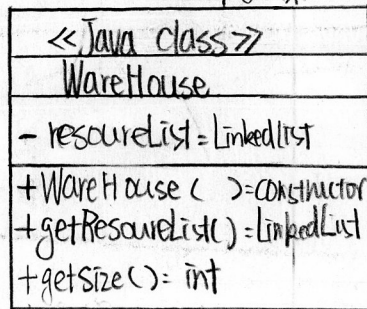 <<Java class>>
WareHouse
- resoureList=LinkedList
+WareHouse( )=constructor
+getResoureList()=LinkedList
+getSize()= int